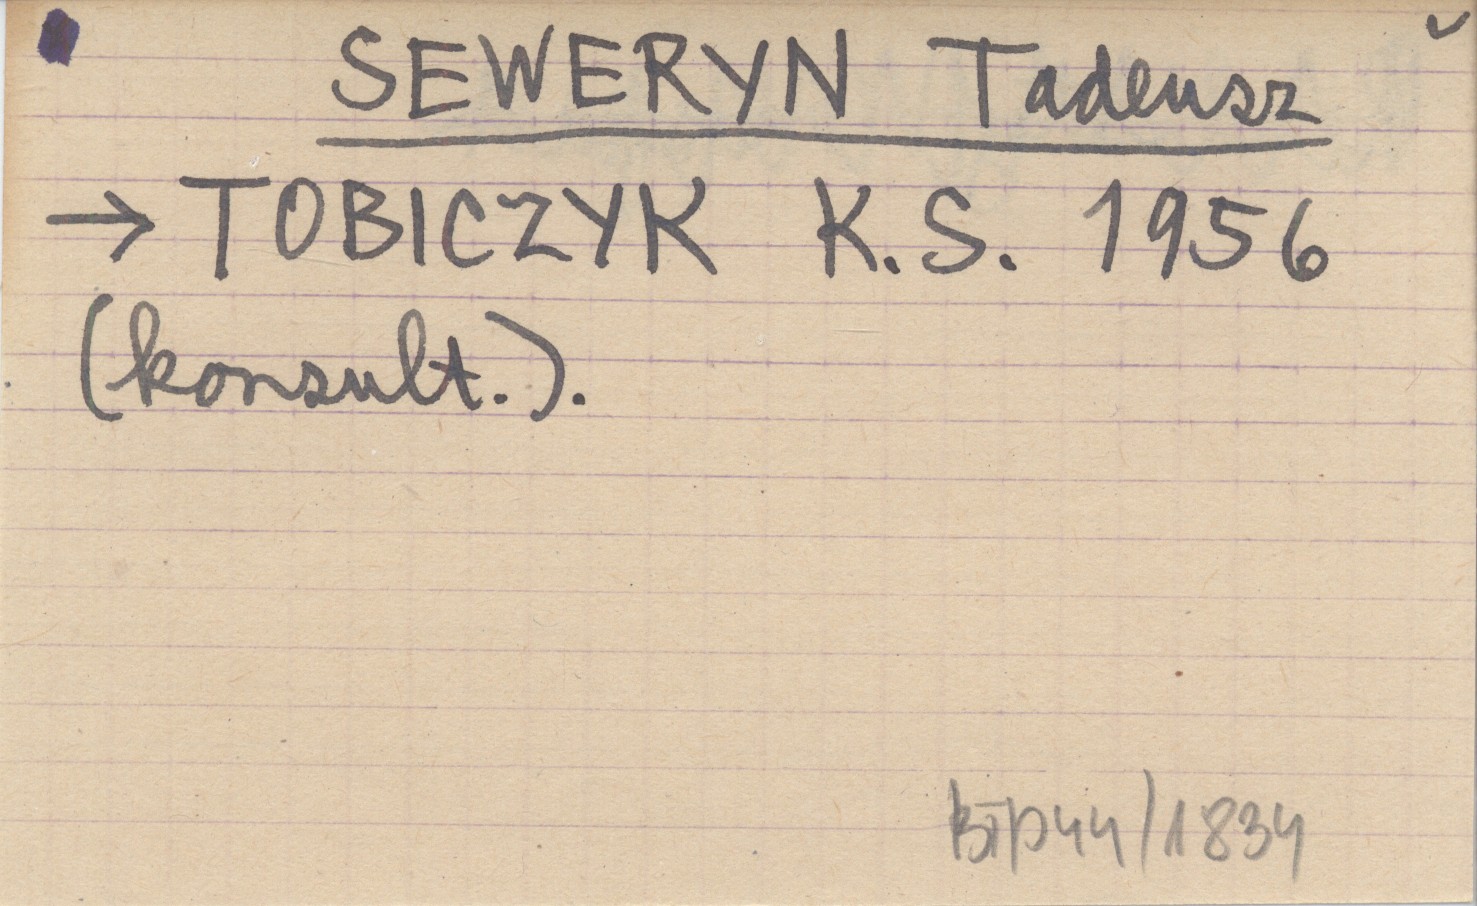 SEWERYN Tadeusz
→ TOBICZYK K.S. 1956
(konsult.).
BTP44/1834